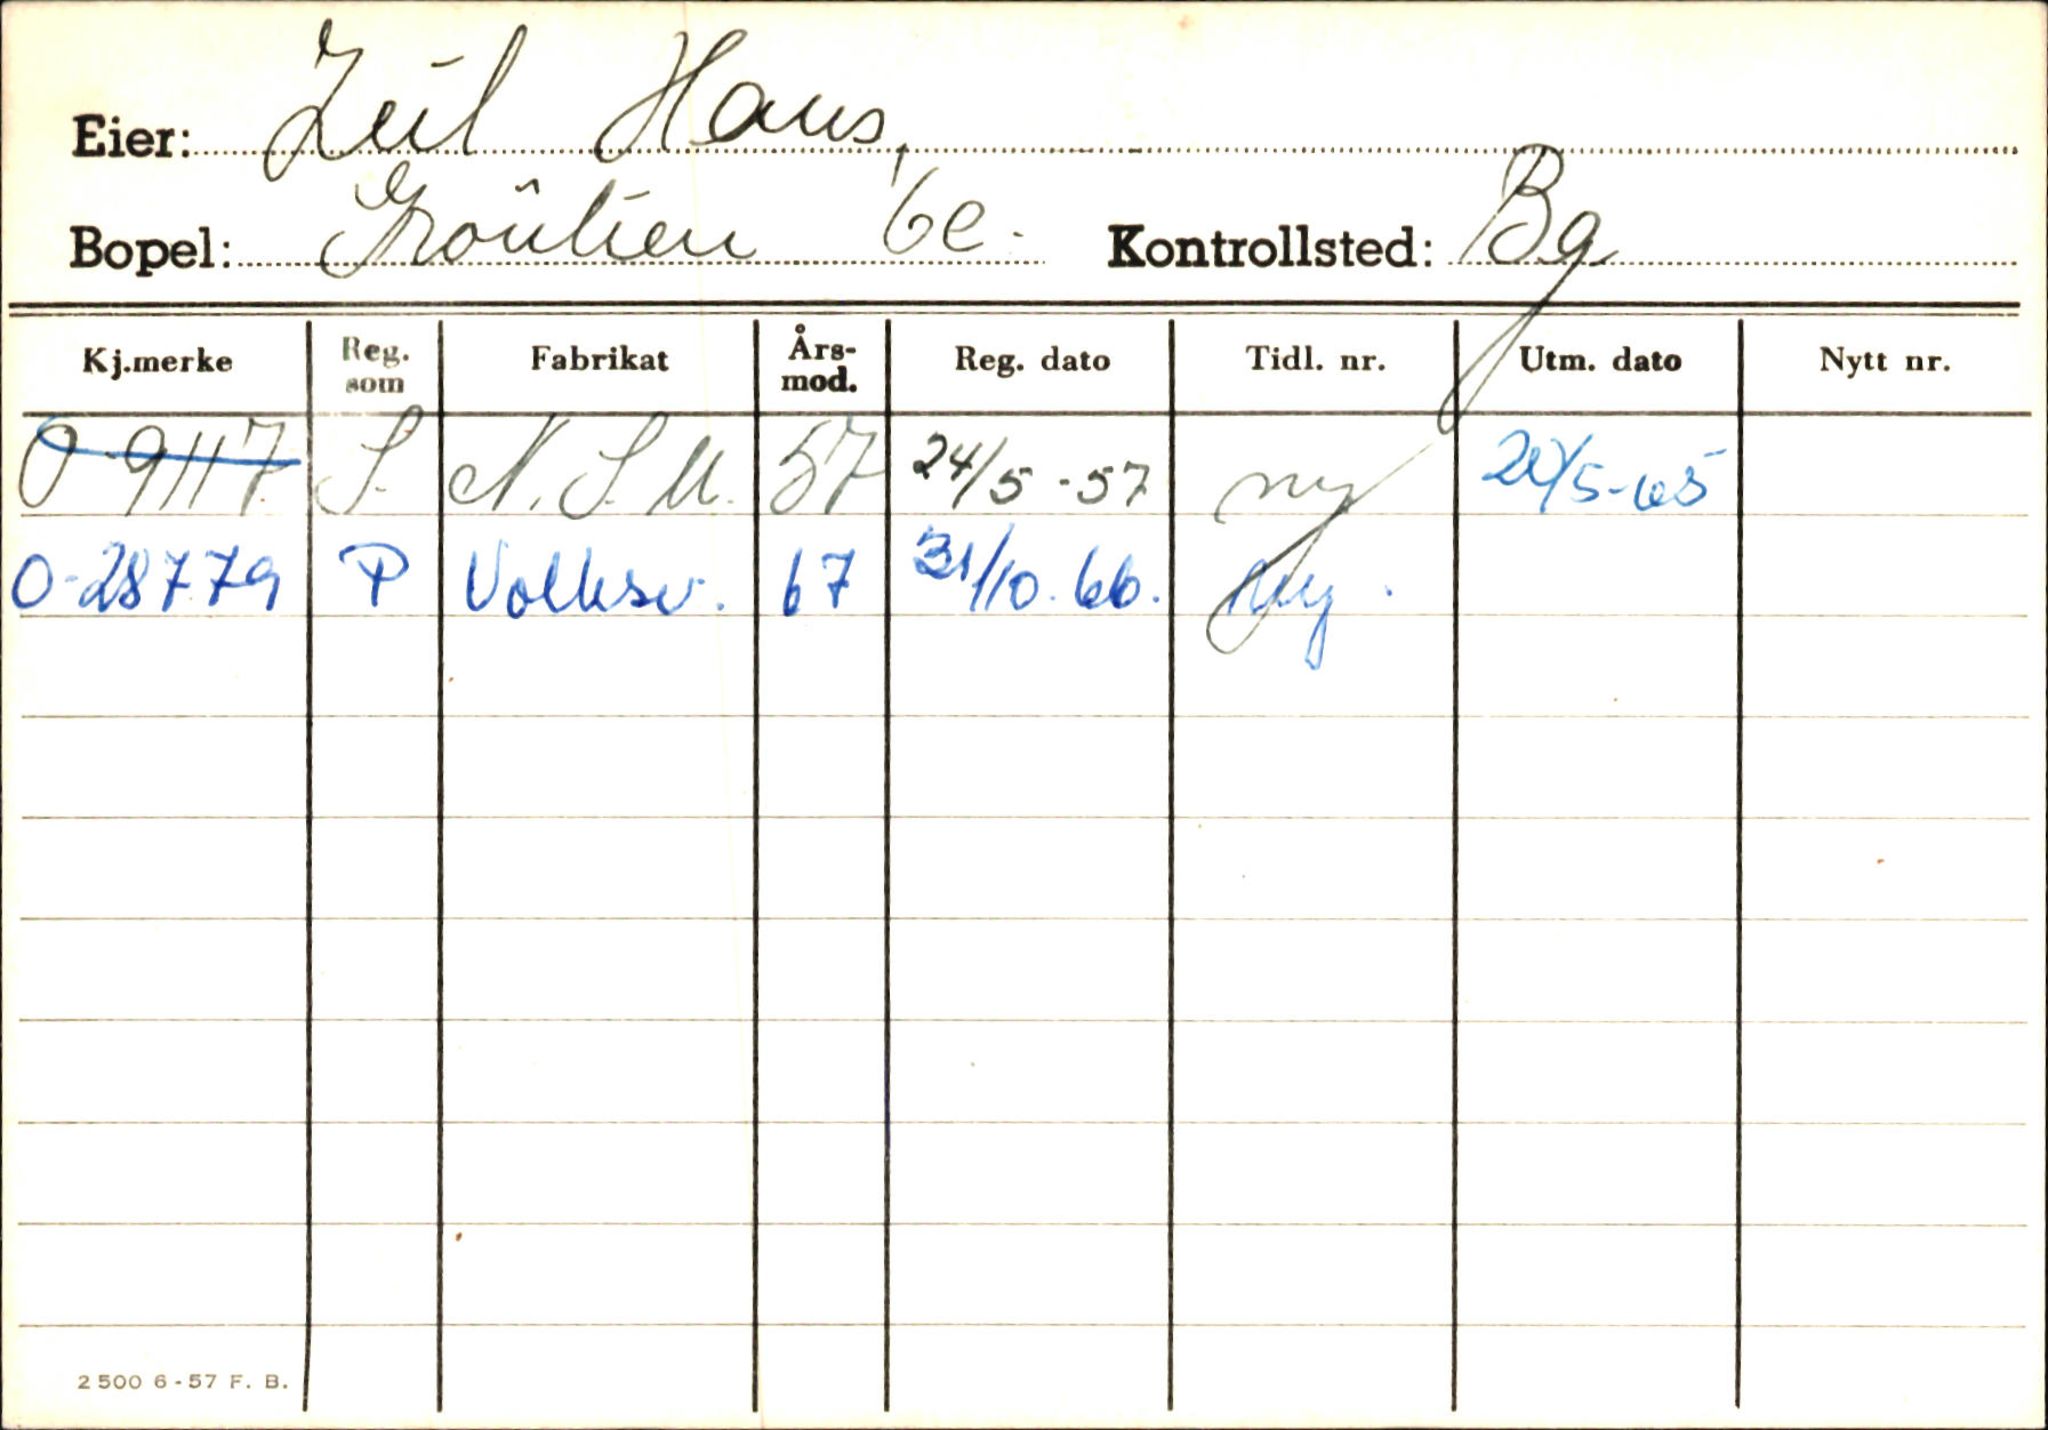 Eier: Zeil Hans,
Bopel: 6e. Kontrollsted: Bg
Kj.merke Reg. som Fabrikat Års-mod. Reg. dato Tidl. nr. Utm. dato Nytt nr.
O-9117 S. N.S.U. 57 24/5-57 ny /5-65
O-28779 P Volksv. 67 31/10.66. Ny.
2500 6-57 F. B.